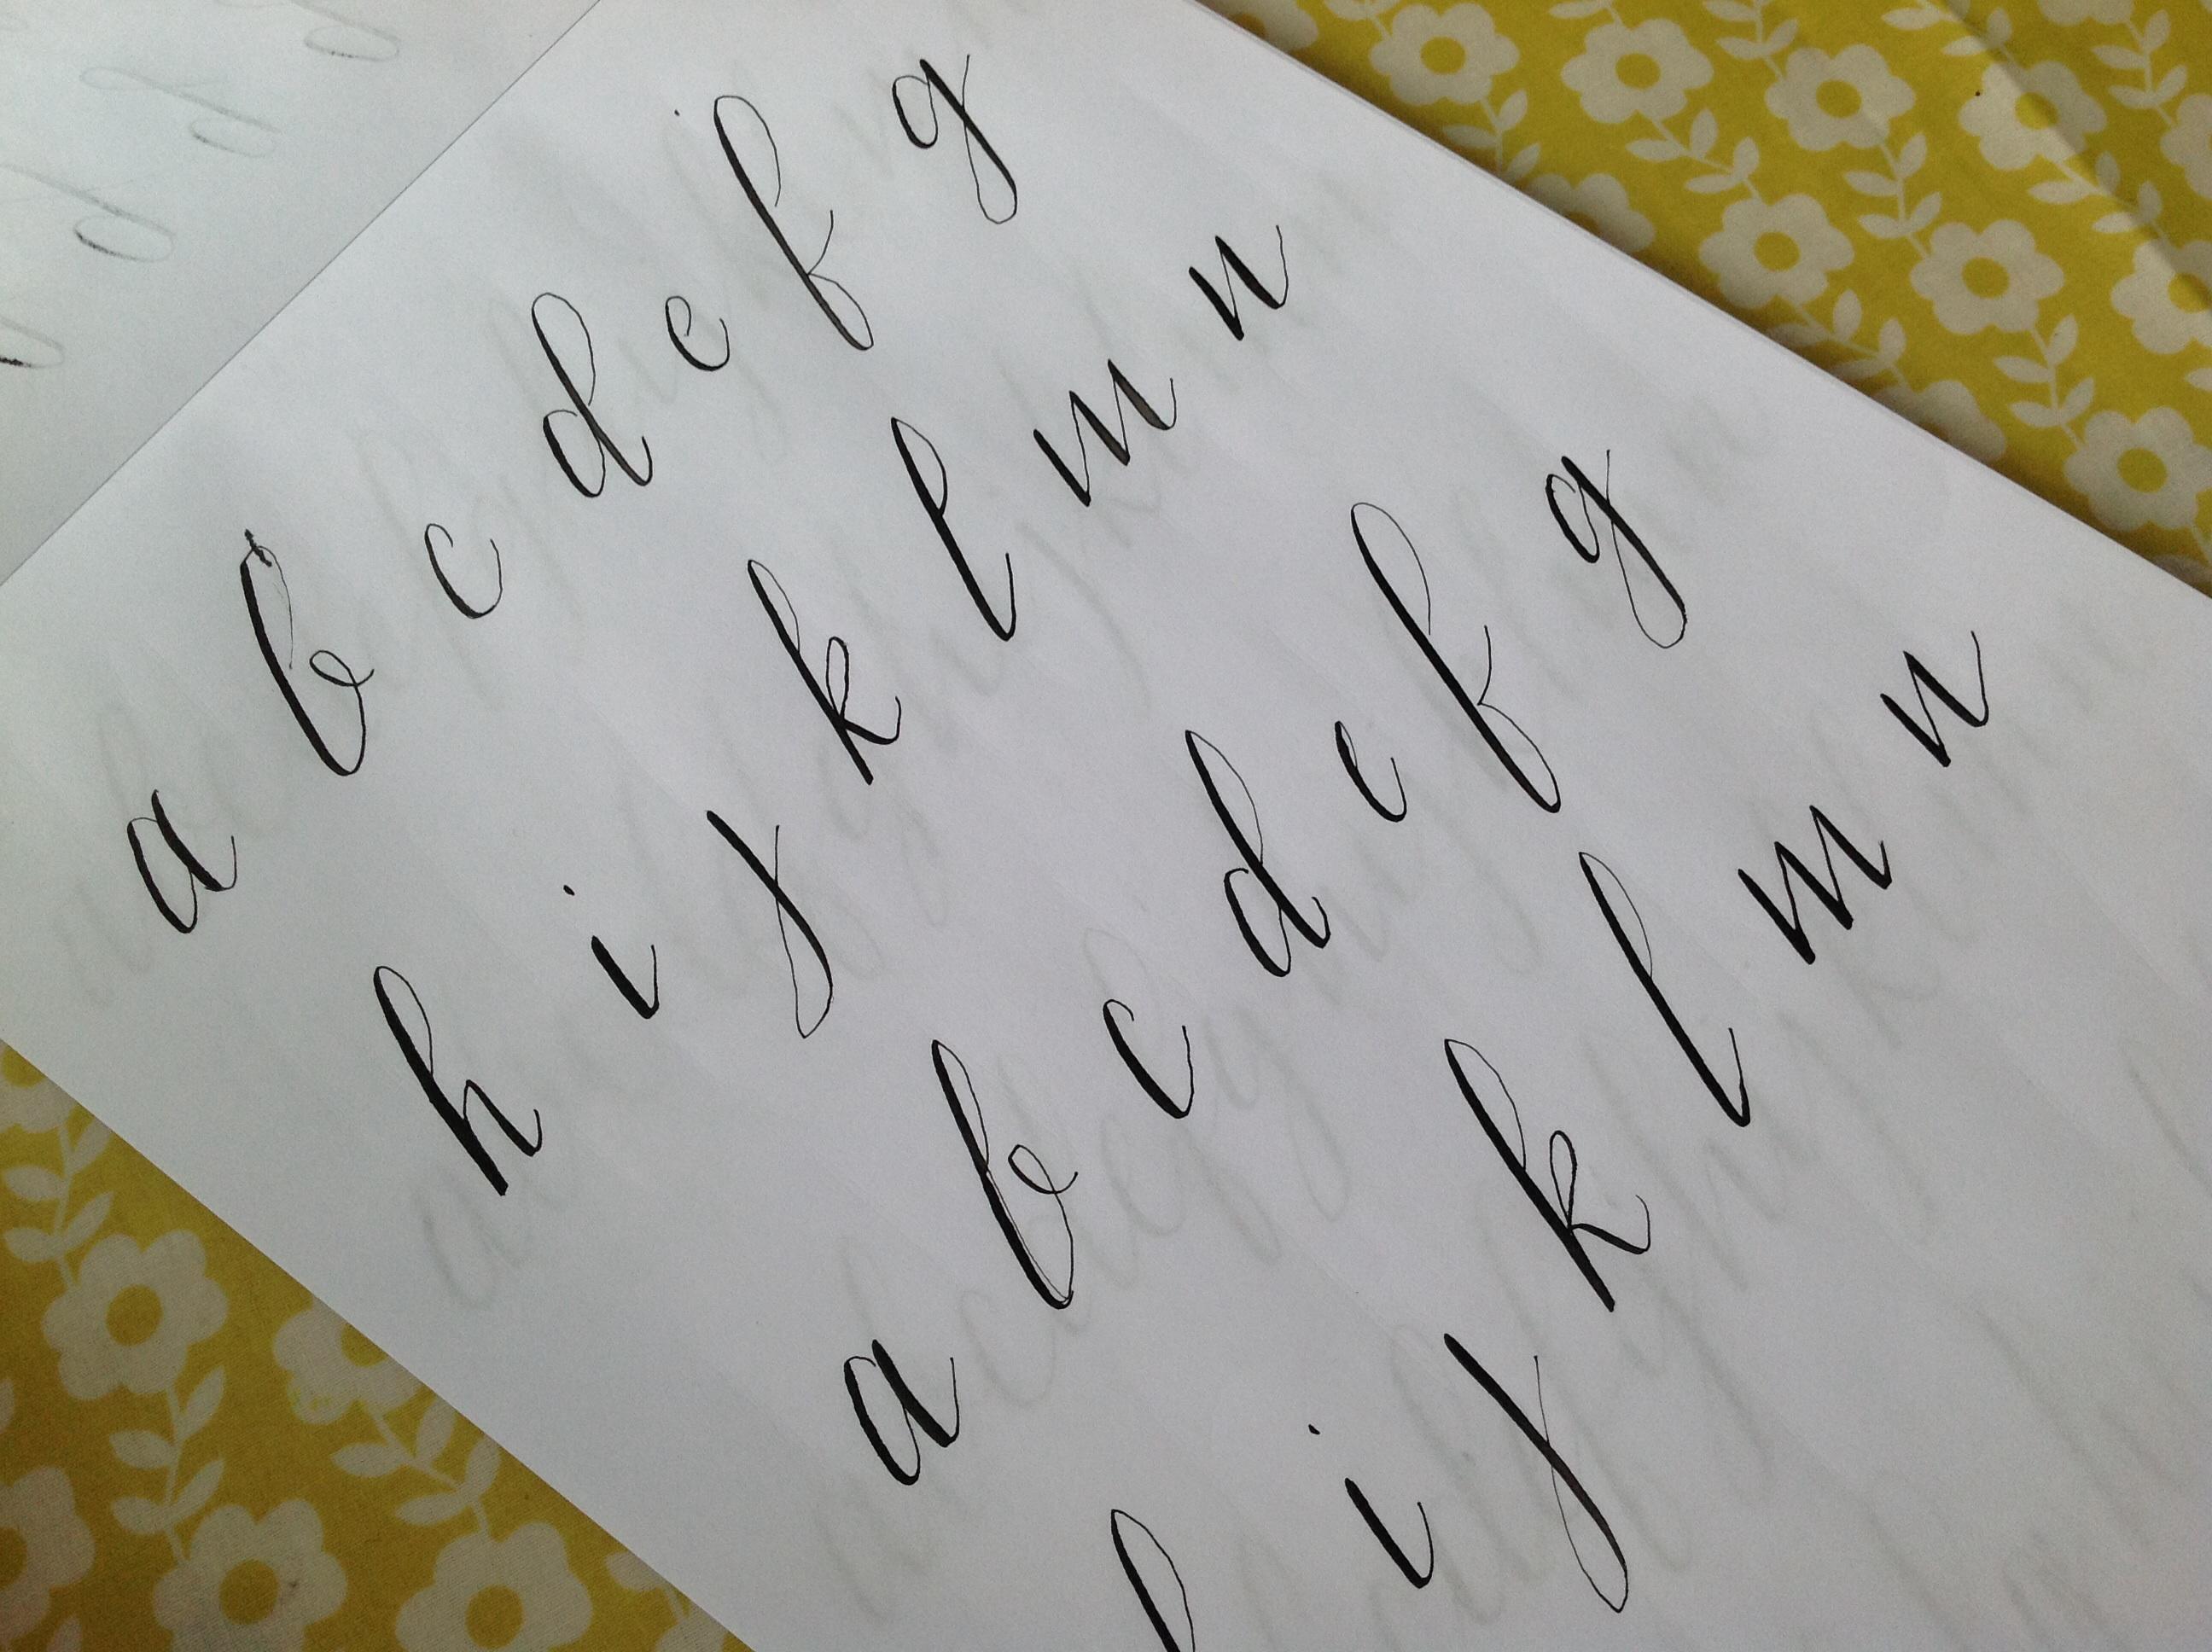 a b c d e f g
h i j k l m n
a b c d e f g
h i j k l m n